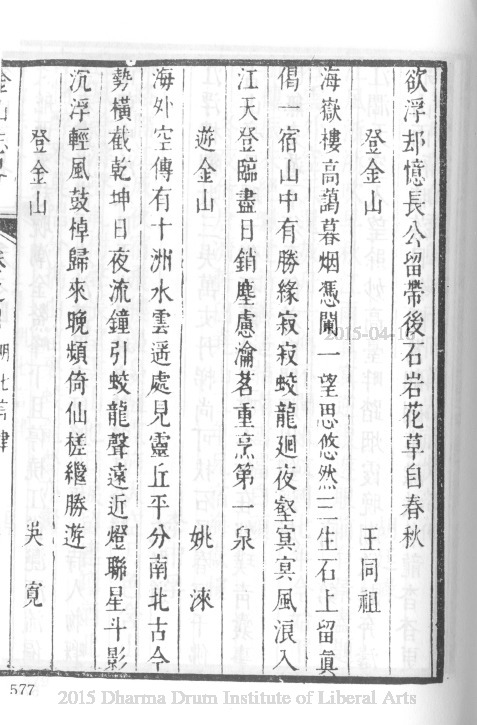 欲浮却憶長公留帶後石岩花草自春秋
登金山 王同祖
海嶽樓高藹暮烟憑闌一望思悠然三生石上留眞
偈一宿山中有勝緣寂寂蛟龍廻夜壑冥冥風浪入
江天登臨盡日銷塵慮瀹茗重烹第一泉
遊金山 姚淶
海外空傳有十洲水雲遥處見靈丘平分南北古今
勢橫截乾坤日夜流鐘引蛟龍聲遠近燈聯星斗影
沉浮輕風鼓棹歸來晚頻倚仙槎繼勝遊
登金山 吳寬
金山志
明七言律
2015-04-1
577
2015 Dharma Drum Institute of Liberal Arts